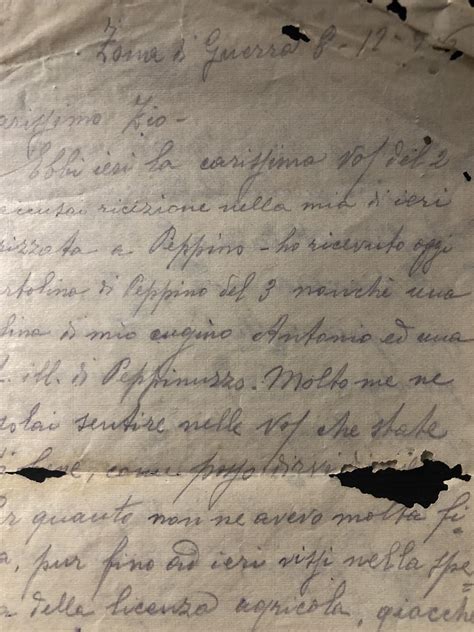 Zona di Guerra 8-12-
arissimo Zio-
Ebbi ieri la carissima Vos del 2
accusai ricezione nella mia di ieri
rizzata a Peppino - ho ricevuto oggi
rtolina di Peppino del 3 nonchè una
lina di mio cugino Antonio ed una
ill. di Peppinuzzo. Molto me ne
solai sentire nelle Vos che state
bene, come posso dirvi di
er quanto non ne avevo molta fi-
a, pur fino ad ieri vissi nella spe
a della licenza agricola, giacchè